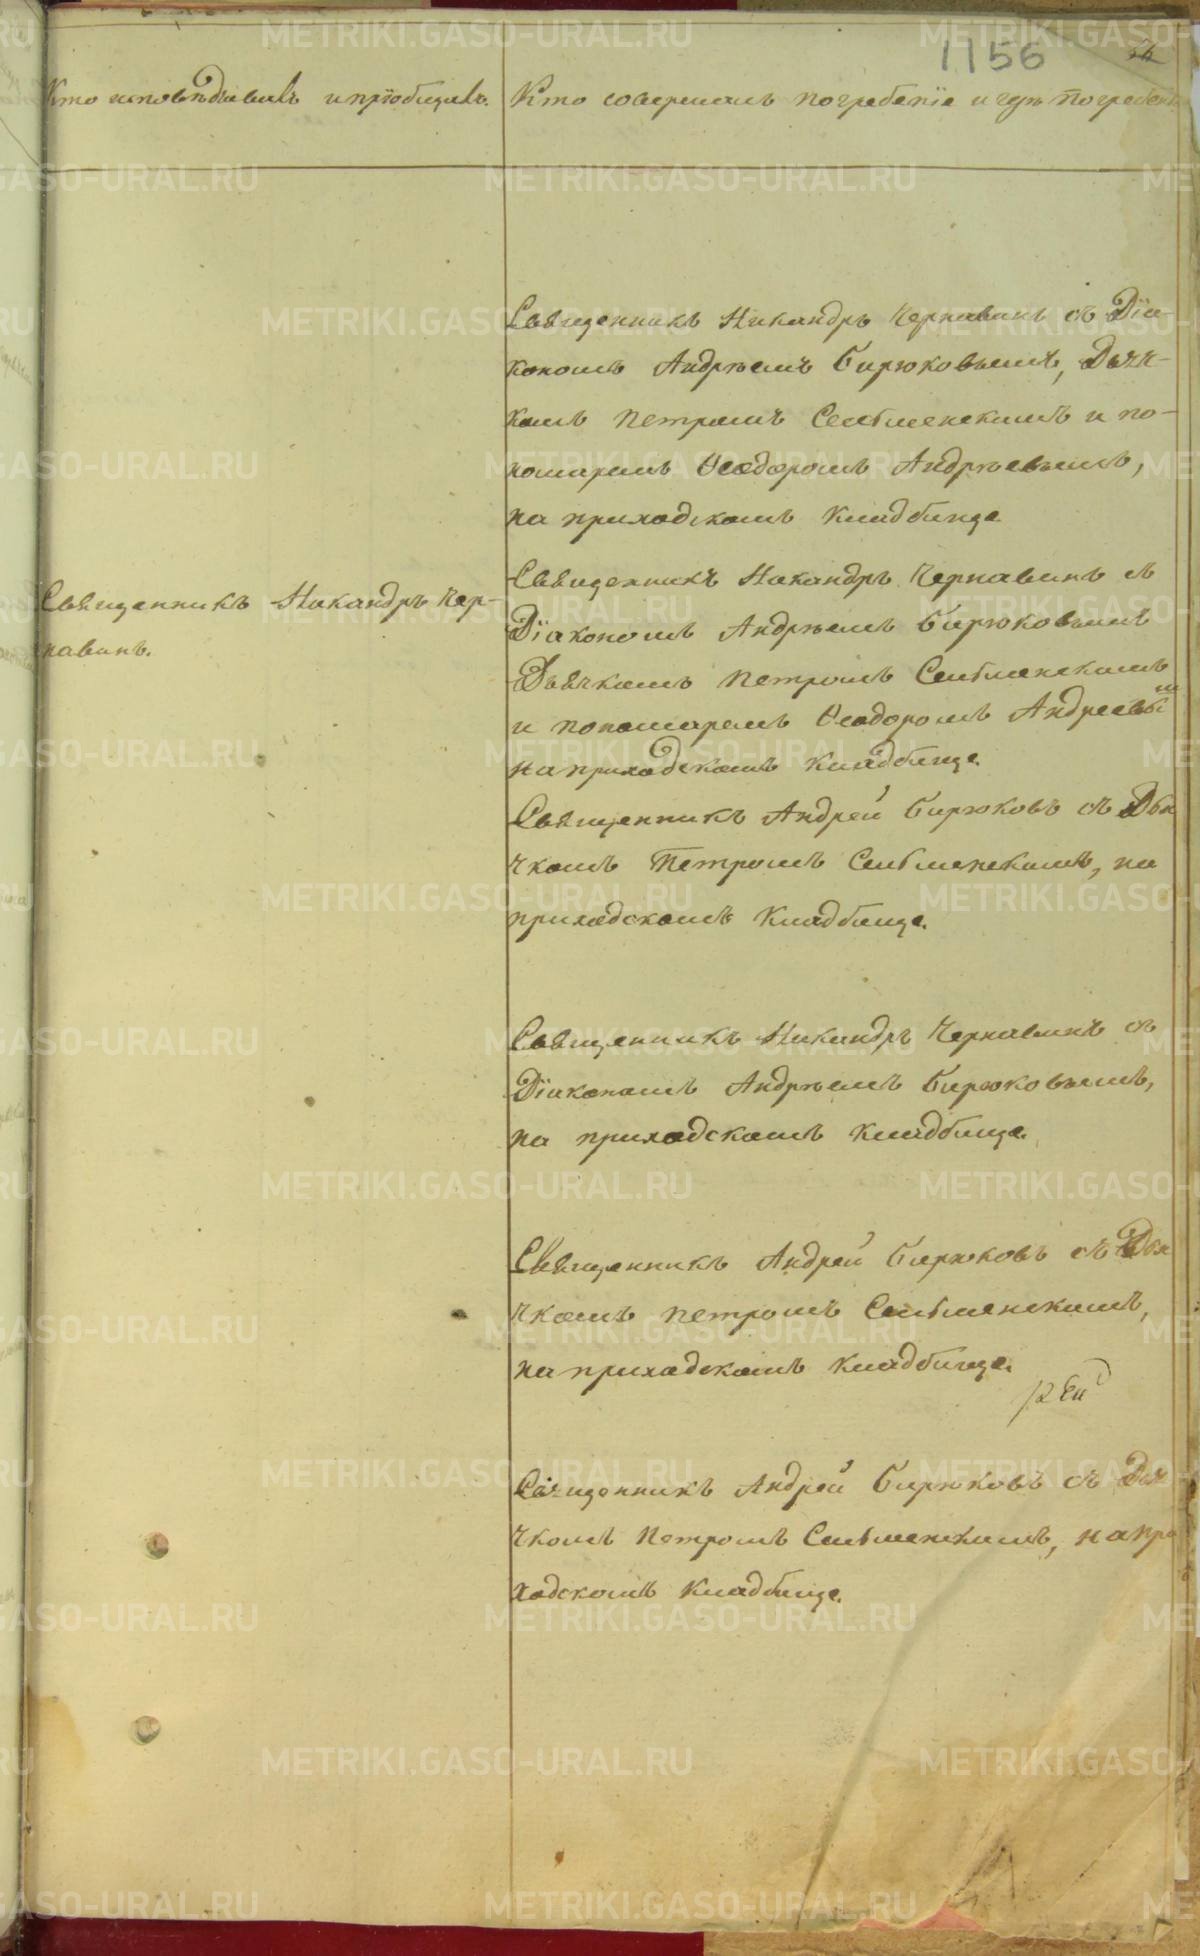 1156
Кто исповѣдывалъ и прїобщилъ.
Кто совершалъ погребенїе и гдѣ погребены
Священникъ Никандръ Чернавинъ съ Дїа-
кономъ Андрѣемъ Бирюковымъ, Дьяч-
комъ Петромъ Сельменскимъ и по-
номаремъ Ѳеодоромъ Андрѣевымъ,
на приходскомъ кладбище
Священникъ Никандръ Чер-
навинъ.
Священникъ Никандръ Чернавинъ съ
Дїакономъ Андрѣемъ Бирюковымъ
Дьячкомъ Петромъ Сельменскимъ
и пономаремъ Ѳеодоромъ Андреевым
на приходскомъ кладбище.
Священникъ Андрей Бирюковъ съ Дья
чкомъ Петромъ Сельменскимъ, на
приходскомъ кладбище.
Священникъ Никандръ Чернавинъ съ
Дїакономъ Андрѣемъ Бирюковымъ,
на приходскомъ кладбище.
Священникъ Андрей Бирюковъ съ Дья
чкомъ Петромъ Сельменскимъ,
на приходскомъ кладбище.
Священникъ Андрей Бирюковъ съ Дья
чкомъ Петромъ Сельменскимъ, на при
ходскомъ кладбище.
METRIKI.GASO-URAL.RU